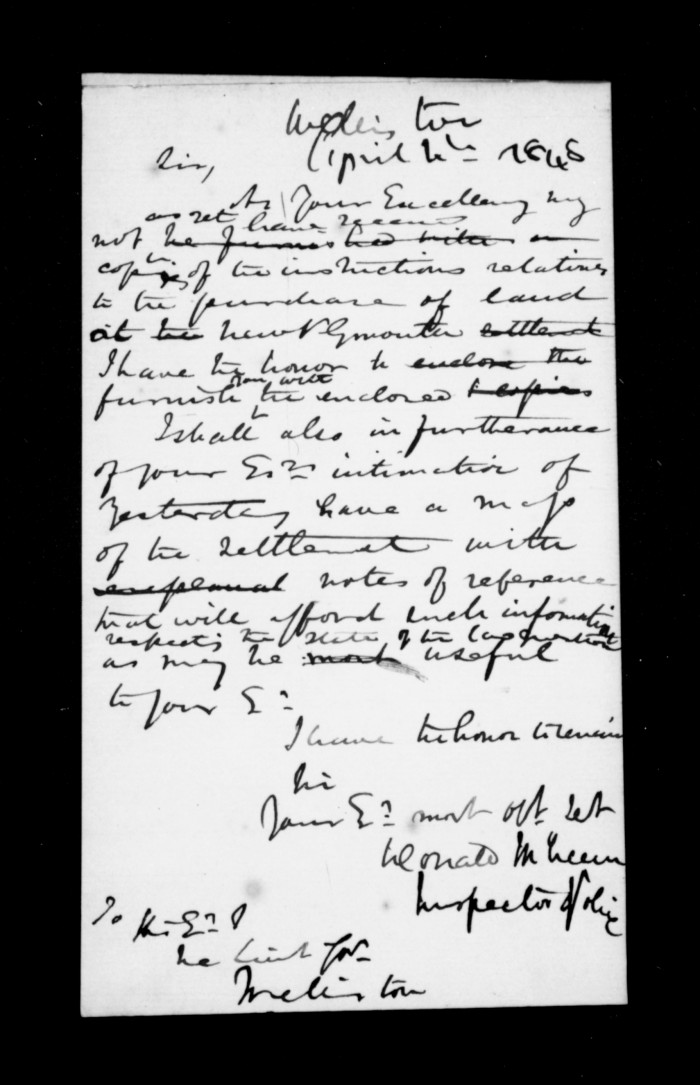 Wellington
April 4th 1848
Sir,
As Your Excellency may
as yet have receive
not be furnished with a
copies of the instructions relative
to the purchase of land
at the New Plymouth settlement
I have the honor to enclose the
furnish you with the enclosed copies
I shall also in furtherance
of your Ex's intimation of
yesterday have a map
of the settlement with
notes of reference
that will afford such information
respecting the state of the
as may be most useful
to your Ex
I have the honor to remain
Sir
Your Ex most obt Set
Donald McLean
Inspector Police
To
His Ex
The Lieut Gov
Wellington